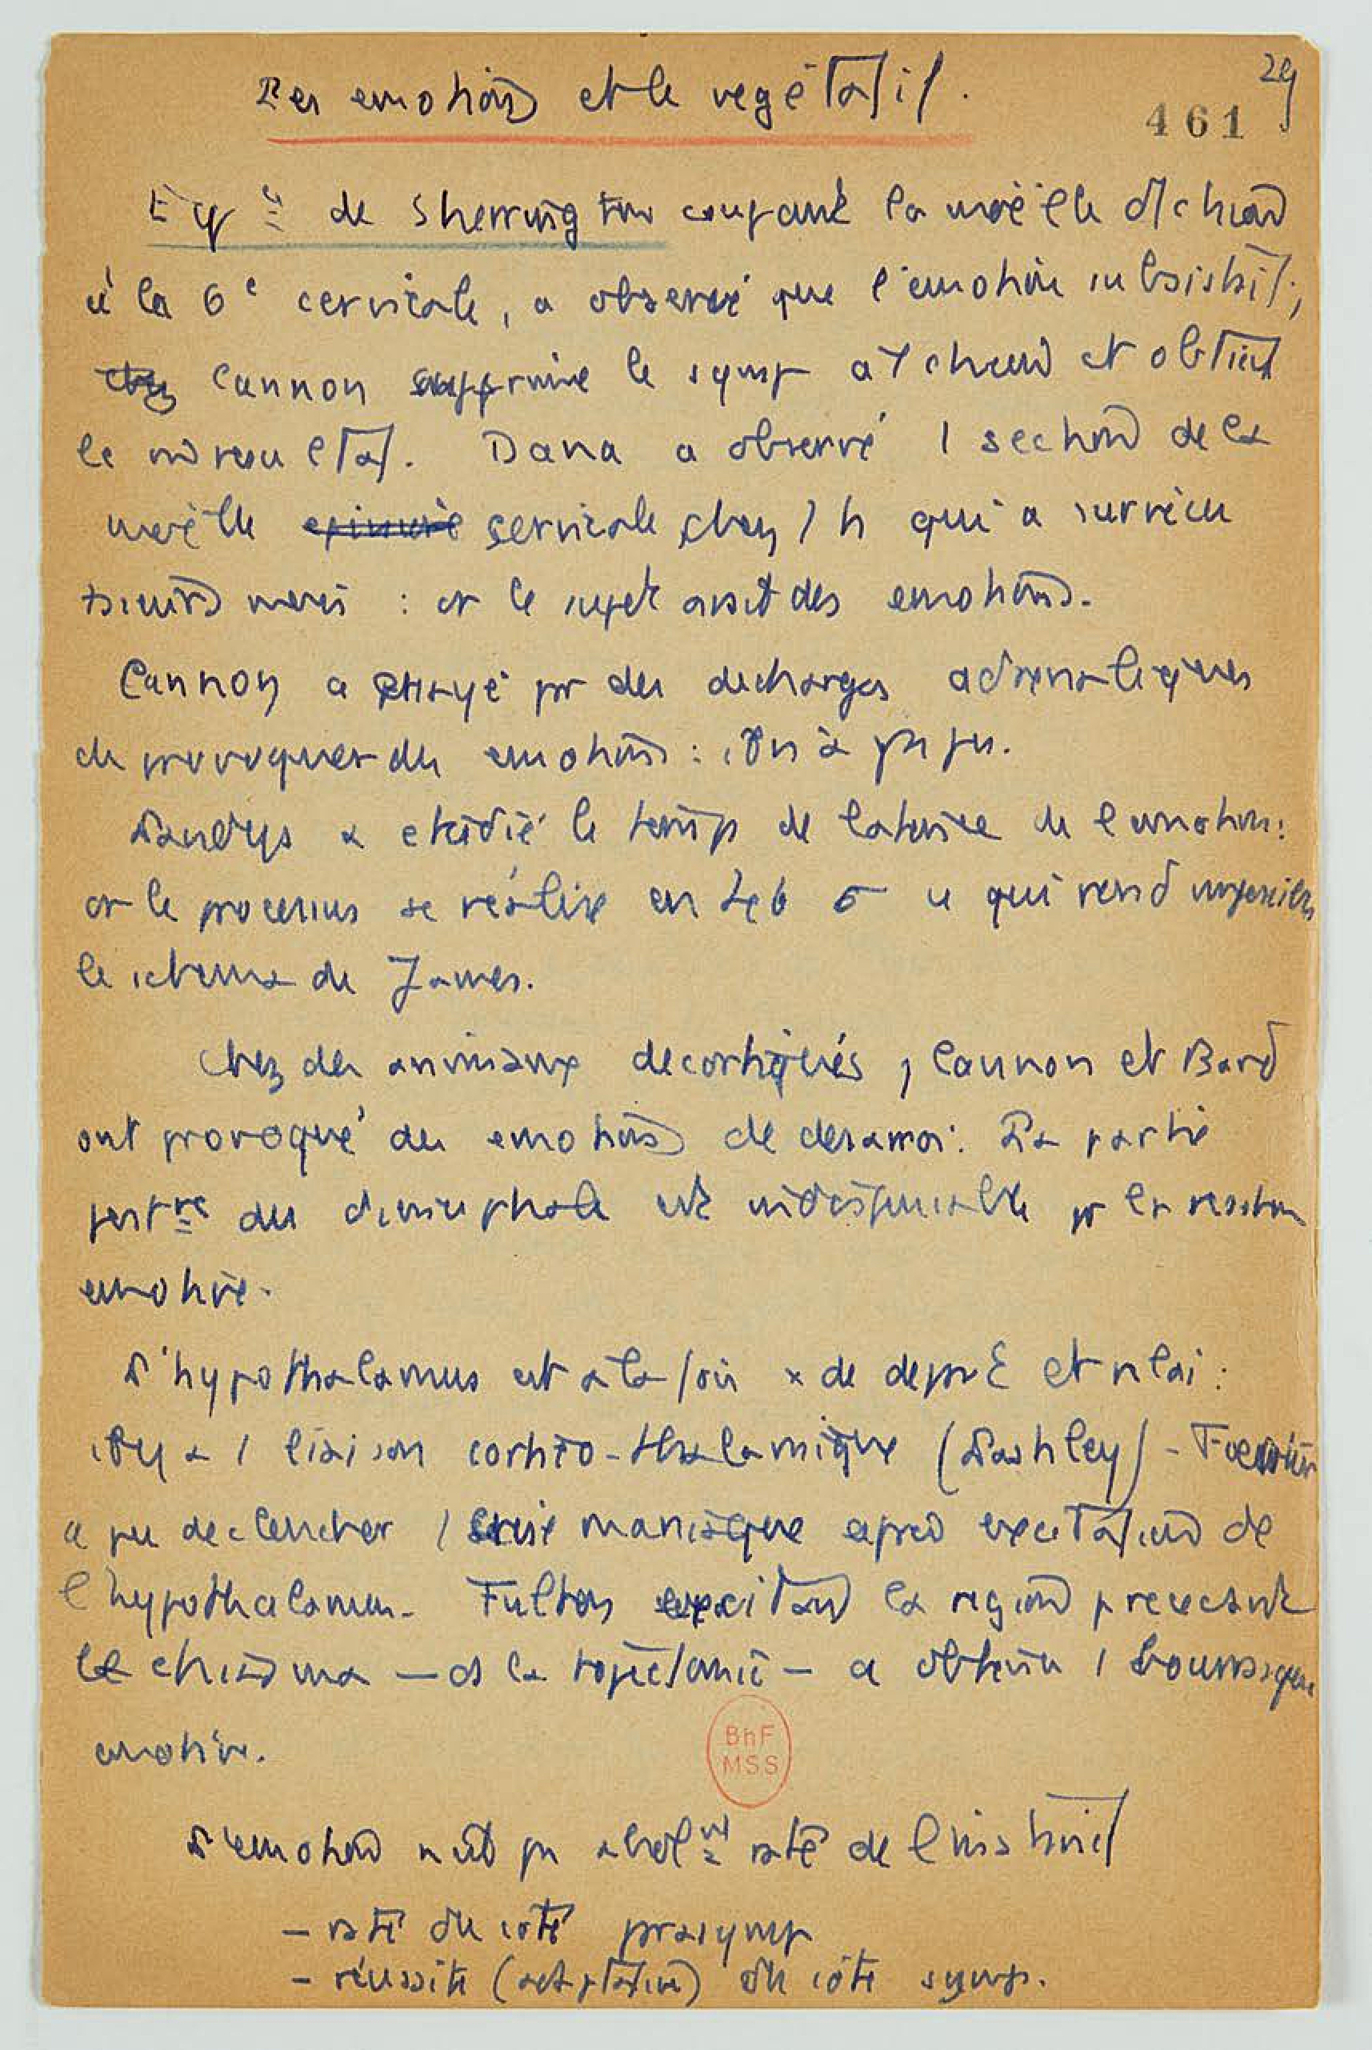 29
461
Les emotions et le végétatif.
Expce de Sherrington coupant la moëlle d'1 chien
à la 6e cervicale, a observé que l'emotion subsistait;
chez Cannon supprime le symp à 1 chien et obtient
le m resultat. Dana a observé 1 section de la
moëlle epiniere cervicale chez 1 h qui a survécu
mois : or le sujet avait des emotions.
Cannon a essayé par des decharges adrenaliques
de provoquer des emotions : il n'a pas pu.
a etudié le temps de latence de l'emotion:
or le processus se réalise en σ ce qui rend impossible
le schema de James.
Chez des animaux decortiqués, Cannon et Bard
ont provoqué des emotions de desarroi. La partie
postre du diencephale est indispensable pr la reaction
emotive.
L'hypothalamus est à la fois x de depart et relai :
il y a 1 liaison cortico-thalamique (Lashley) - Foerster
a pu declencher 1 crise maniaque après excitation de
l'hypothalamus. Fulton excitant la region precedant
le chiasma — ds la topectomie — a obtenu 1 bourrasque
emotive.
L'emotion n'est pas absolt raté de l'instinct
- raté du côté parasymp
- réussite (adaptation) du côté symp.
BnF
MSS